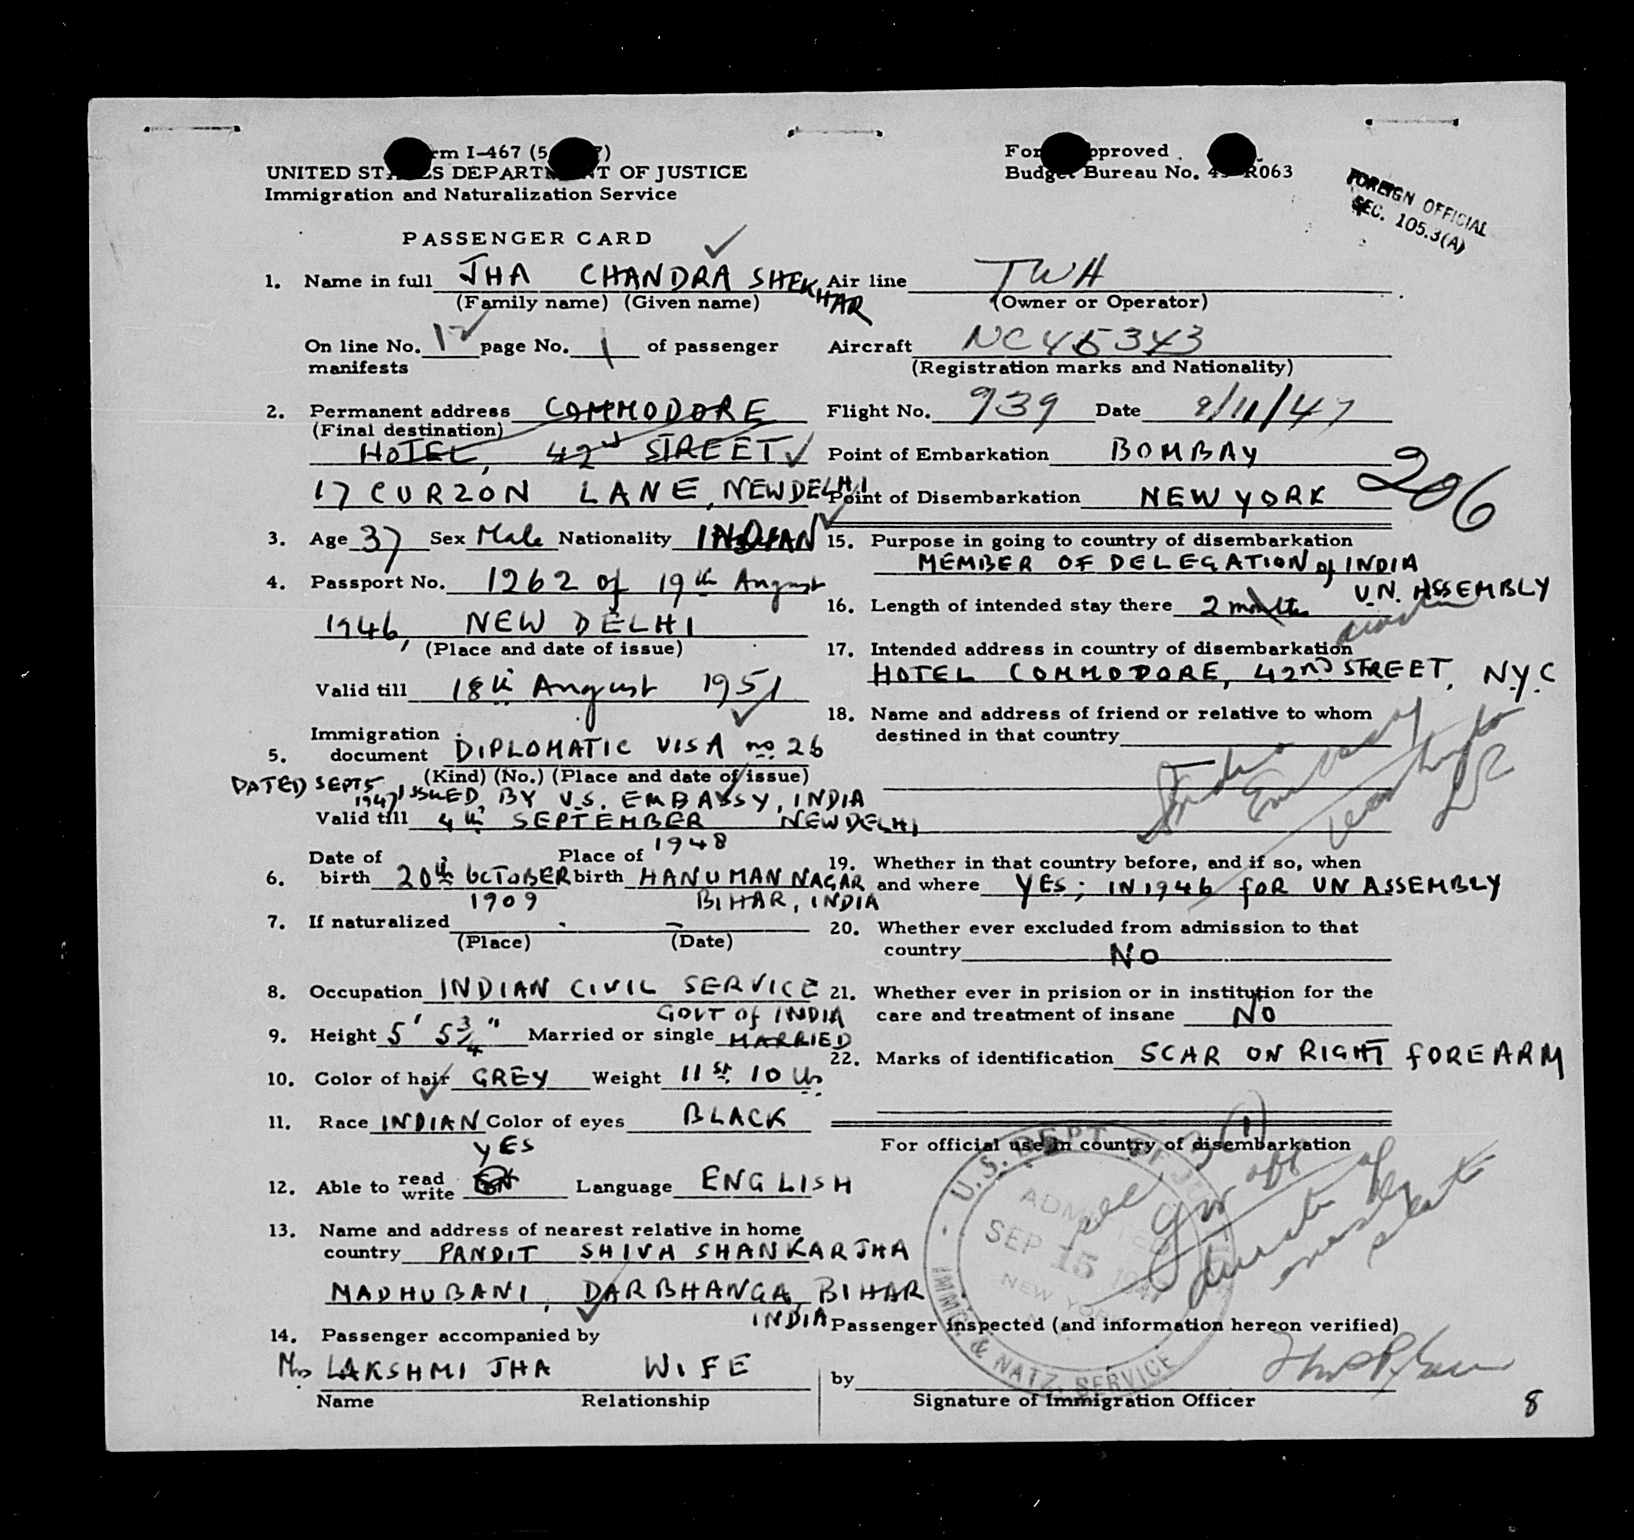 rm I-467 (5 7)
UNITED STATES DEPARTMENT OF JUSTICE
Immigration and Naturalization Service
PASSENGER CARD
For pproved
Budget Bureau No. 43-R063
FOREIGN OFFICIAL
SEC. 105.3(A)
1. Name in full JHA CHANDRA SHEKHAR
(Family name) (Given name)
On line No. 12 page No. 1 of passenger
manifests
2. Permanent address COMMODORE
(Final destination)
HOTEL, 42nd STREET
17 CURZON LANE, NEW DELHI
3. Age 37 Sex Male Nationality INDIAN
4. Passport No. 1262 of 19th August
1946, NEW DELHI
(Place and date of issue)
Valid till 18th August 1951
5. Immigration
document DIPLOMATIC VISA no 26
(Kind) (No.) (Place and date of issue)
DATED SEPT 5
1947 ISSUED BY U.S. EMBASSY, INDIA
Valid till 4th SEPTEMBER NEW DELHI
1948
6. Date of birth 20th OCTOBER Place of birth HANUMAN NAGAR
1909 BIHAR, INDIA
7. If naturalized - -
(Place) (Date)
8. Occupation INDIAN CIVIL SERVICE
GOVT of INDIA
9. Height 5' 5 3/4" Married or single MARRIED
10. Color of hair GREY Weight 11 st. 10 lbs
11. Race INDIAN Color of eyes BLACK
YES
12. Able to read write Language ENGLISH
13. Name and address of nearest relative in home
country PANDIT SHIVA SHANKAR JHA
MADHUBANI, DARBHANGA, BIHAR
INDIA
14. Passenger accompanied by
Mrs LAKSHMI JHA WIFE
Name Relationship
Air line TWA
(Owner or Operator)
Aircraft NC45343
(Registration marks and Nationality)
Flight No. 939 Date 9/11/47
Point of Embarkation BOMBAY
Point of Disembarkation NEW YORK
206
15. Purpose in going to country of disembarkation
MEMBER OF DELEGATION of INDIA
U.N. ASSEMBLY
16. Length of intended stay there 2 months
duration
17. Intended address in country of disembarkation
HOTEL COMMODORE, 42ND STREET, N.Y.C
18. Name and address of friend or relative to whom
destined in that country
Indian
Embassy
Washington
DC
19. Whether in that country before, and if so, when
and where YES; IN 1946 FOR UN ASSEMBLY
20. Whether ever excluded from admission to that
country NO
21. Whether ever in prision or in institution for the
care and treatment of insane NO
22. Marks of identification SCAR ON RIGHT FOREARM
For official use in country of disembarkation
U.S. DEPT. OF JUSTICE
ADMITTED
SEP 15 1947
NEW YORK
IMMG. & NATZ. SERVICE
sec 3(1)
duration of
Passenger inspected (and information hereon verified)
by
Signature of Immigration Officer
8